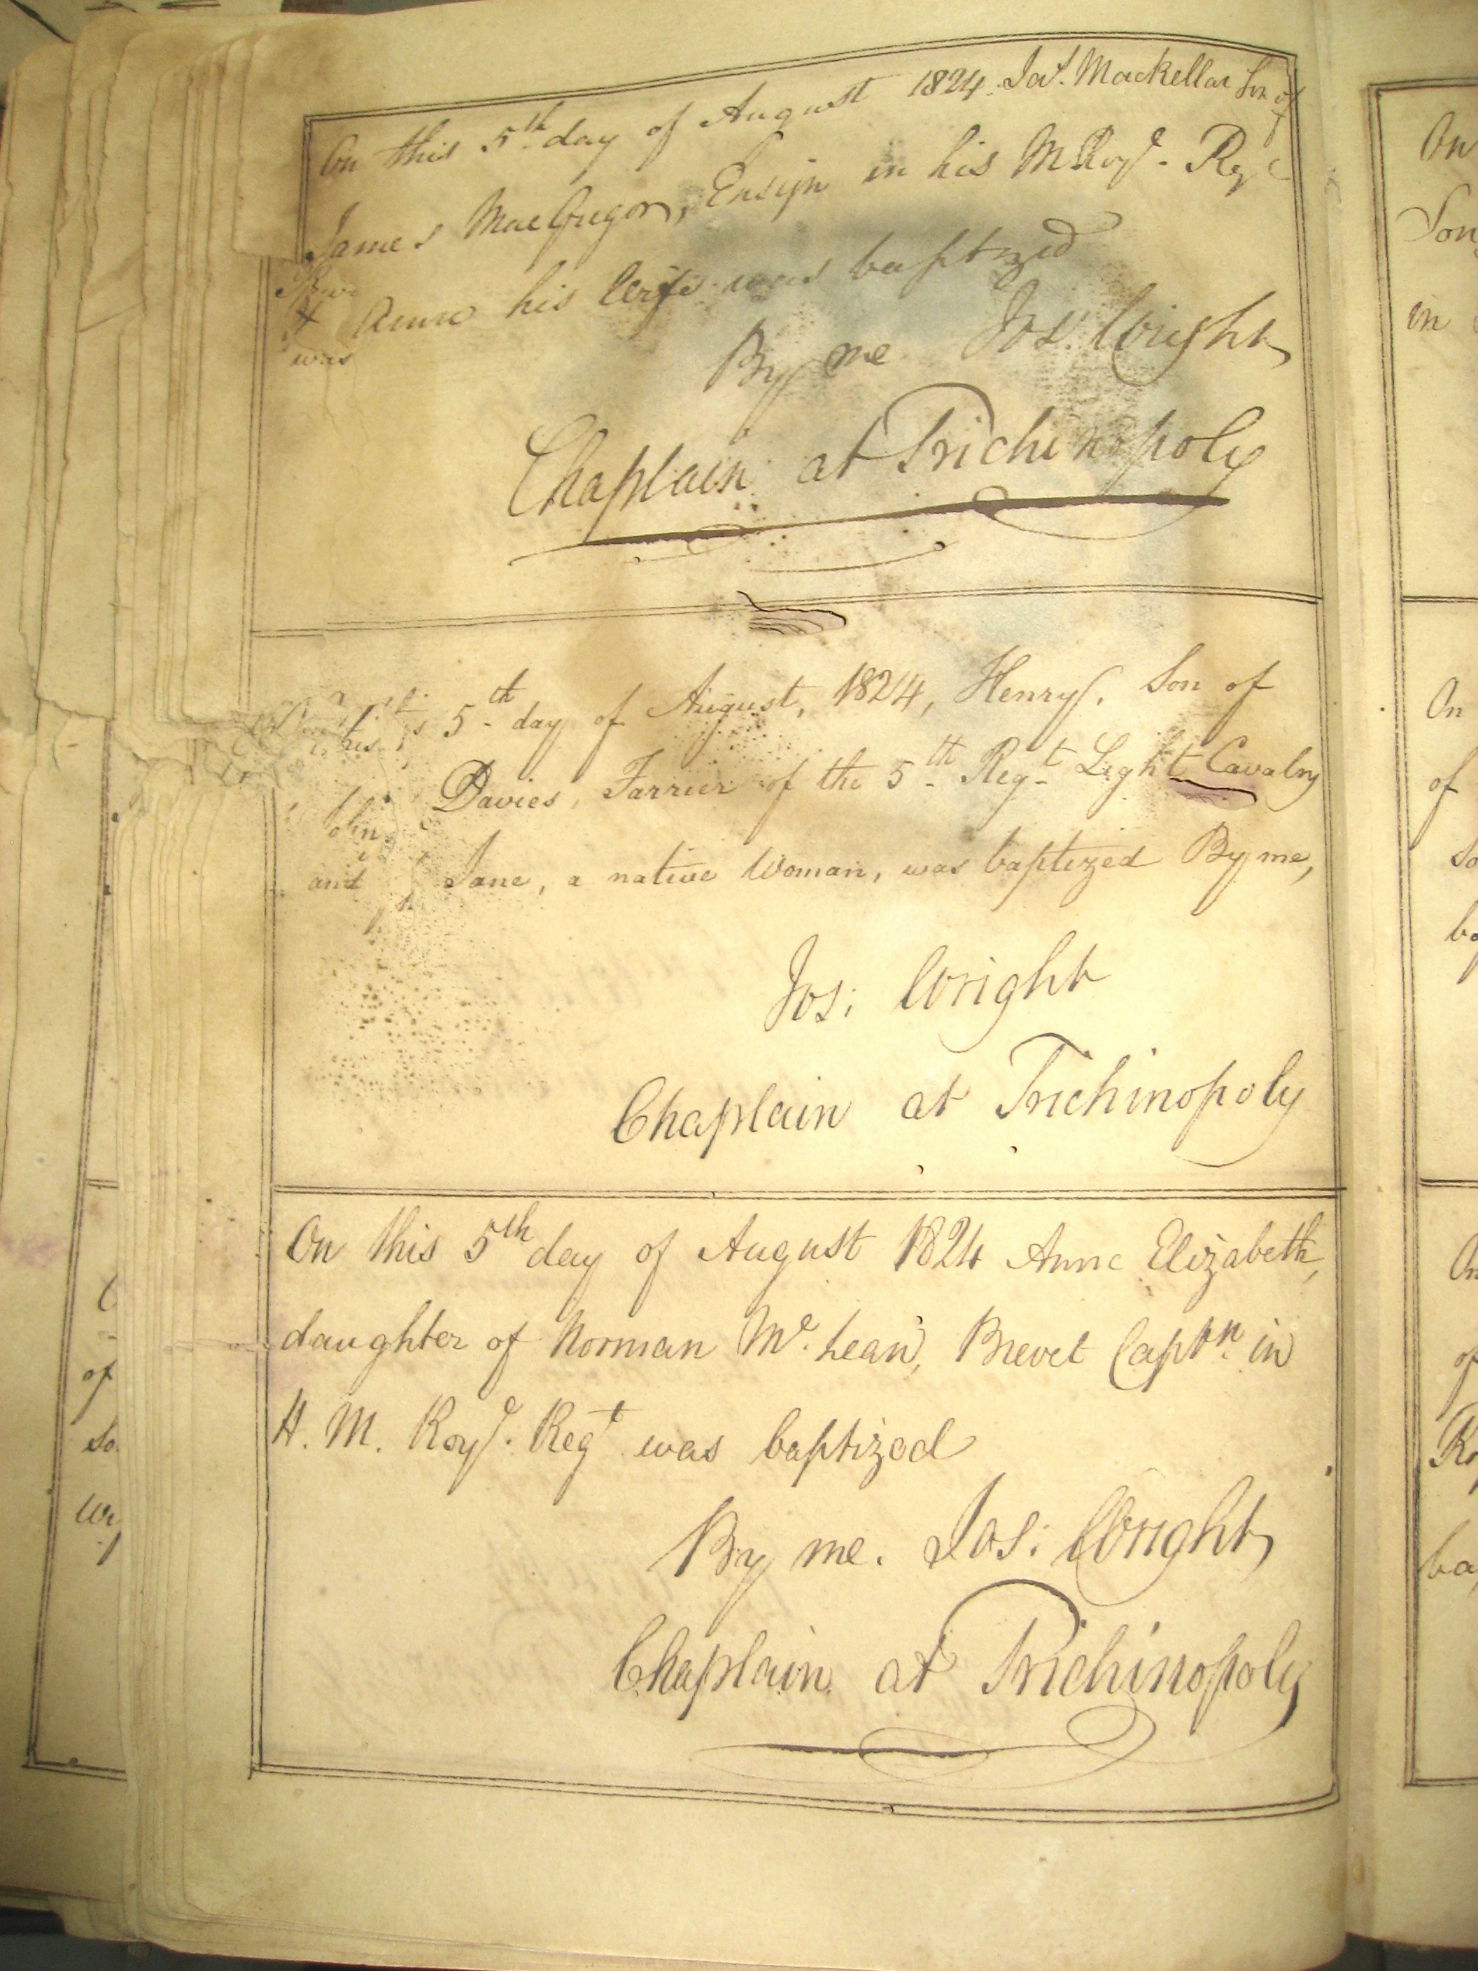 On this 5th day of August 1824. Jas. Mackellar Son of
James MacGregor, Ensign in his M Roy.l Reg
& Anne his Wife was baptized
was
By me Jos: Wright
Chaplain at Trichinopoly
this 5th day of August, 1824, Henry, Son of
John Davies, Farrier of the 5th Regt Light Cavalry
and Jane, a native Woman, was baptized By me,
Jos: Wright
Chaplain at Trichinopoly
On this 5th day of August 1824 Anne Elizabeth,
daughter of Norman Mc. Lean, Brevet Captn. in
H. M. Roy.l Regt was baptized
By me. Jos: Wright
Chaplain at Trichinopoly
On
Son
in
On
of
On
of
of
so